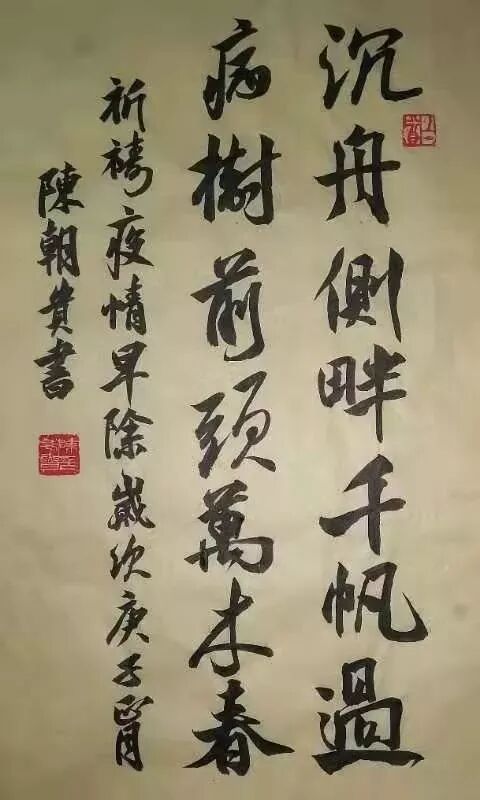 沉舟側畔千帆過
病樹前頭萬木春
祈禱疫情早除歲次庚子正月
陳朝貴書